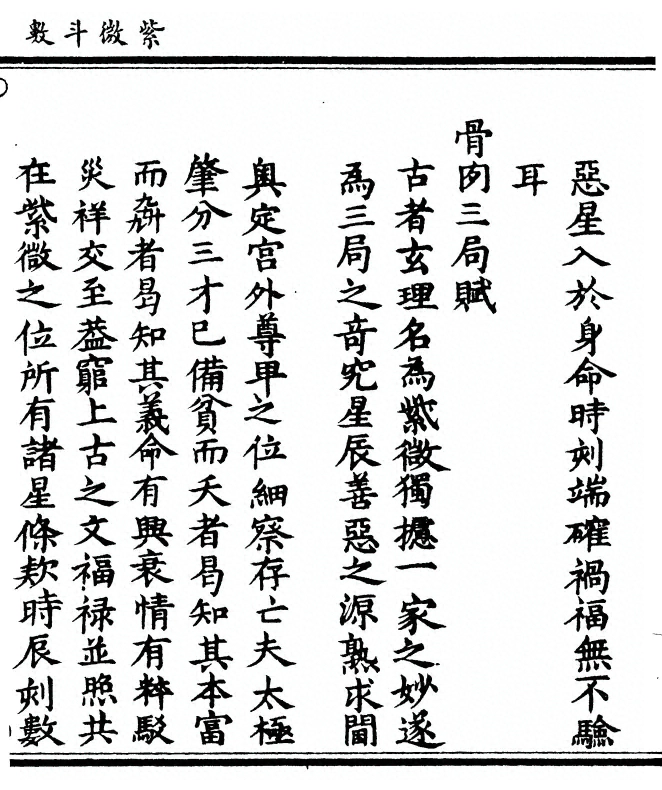 紫微斗數
惡星入於身命時刻端確禍福無不驗
耳
骨肉三局賦
古者玄理名為紫微獨攄一家之妙遂
為三局之竒究星辰善惡之源熟求閫
奥定宫外尊甲之位細察存亡夫太極
肇分三才已備貧而夭者曷知其本富
而者曷知其義命有興衰情有粹駁
災祥交至葢窮上古之文福禄並照共
在紫微之位所有諸星條欵時辰刻數